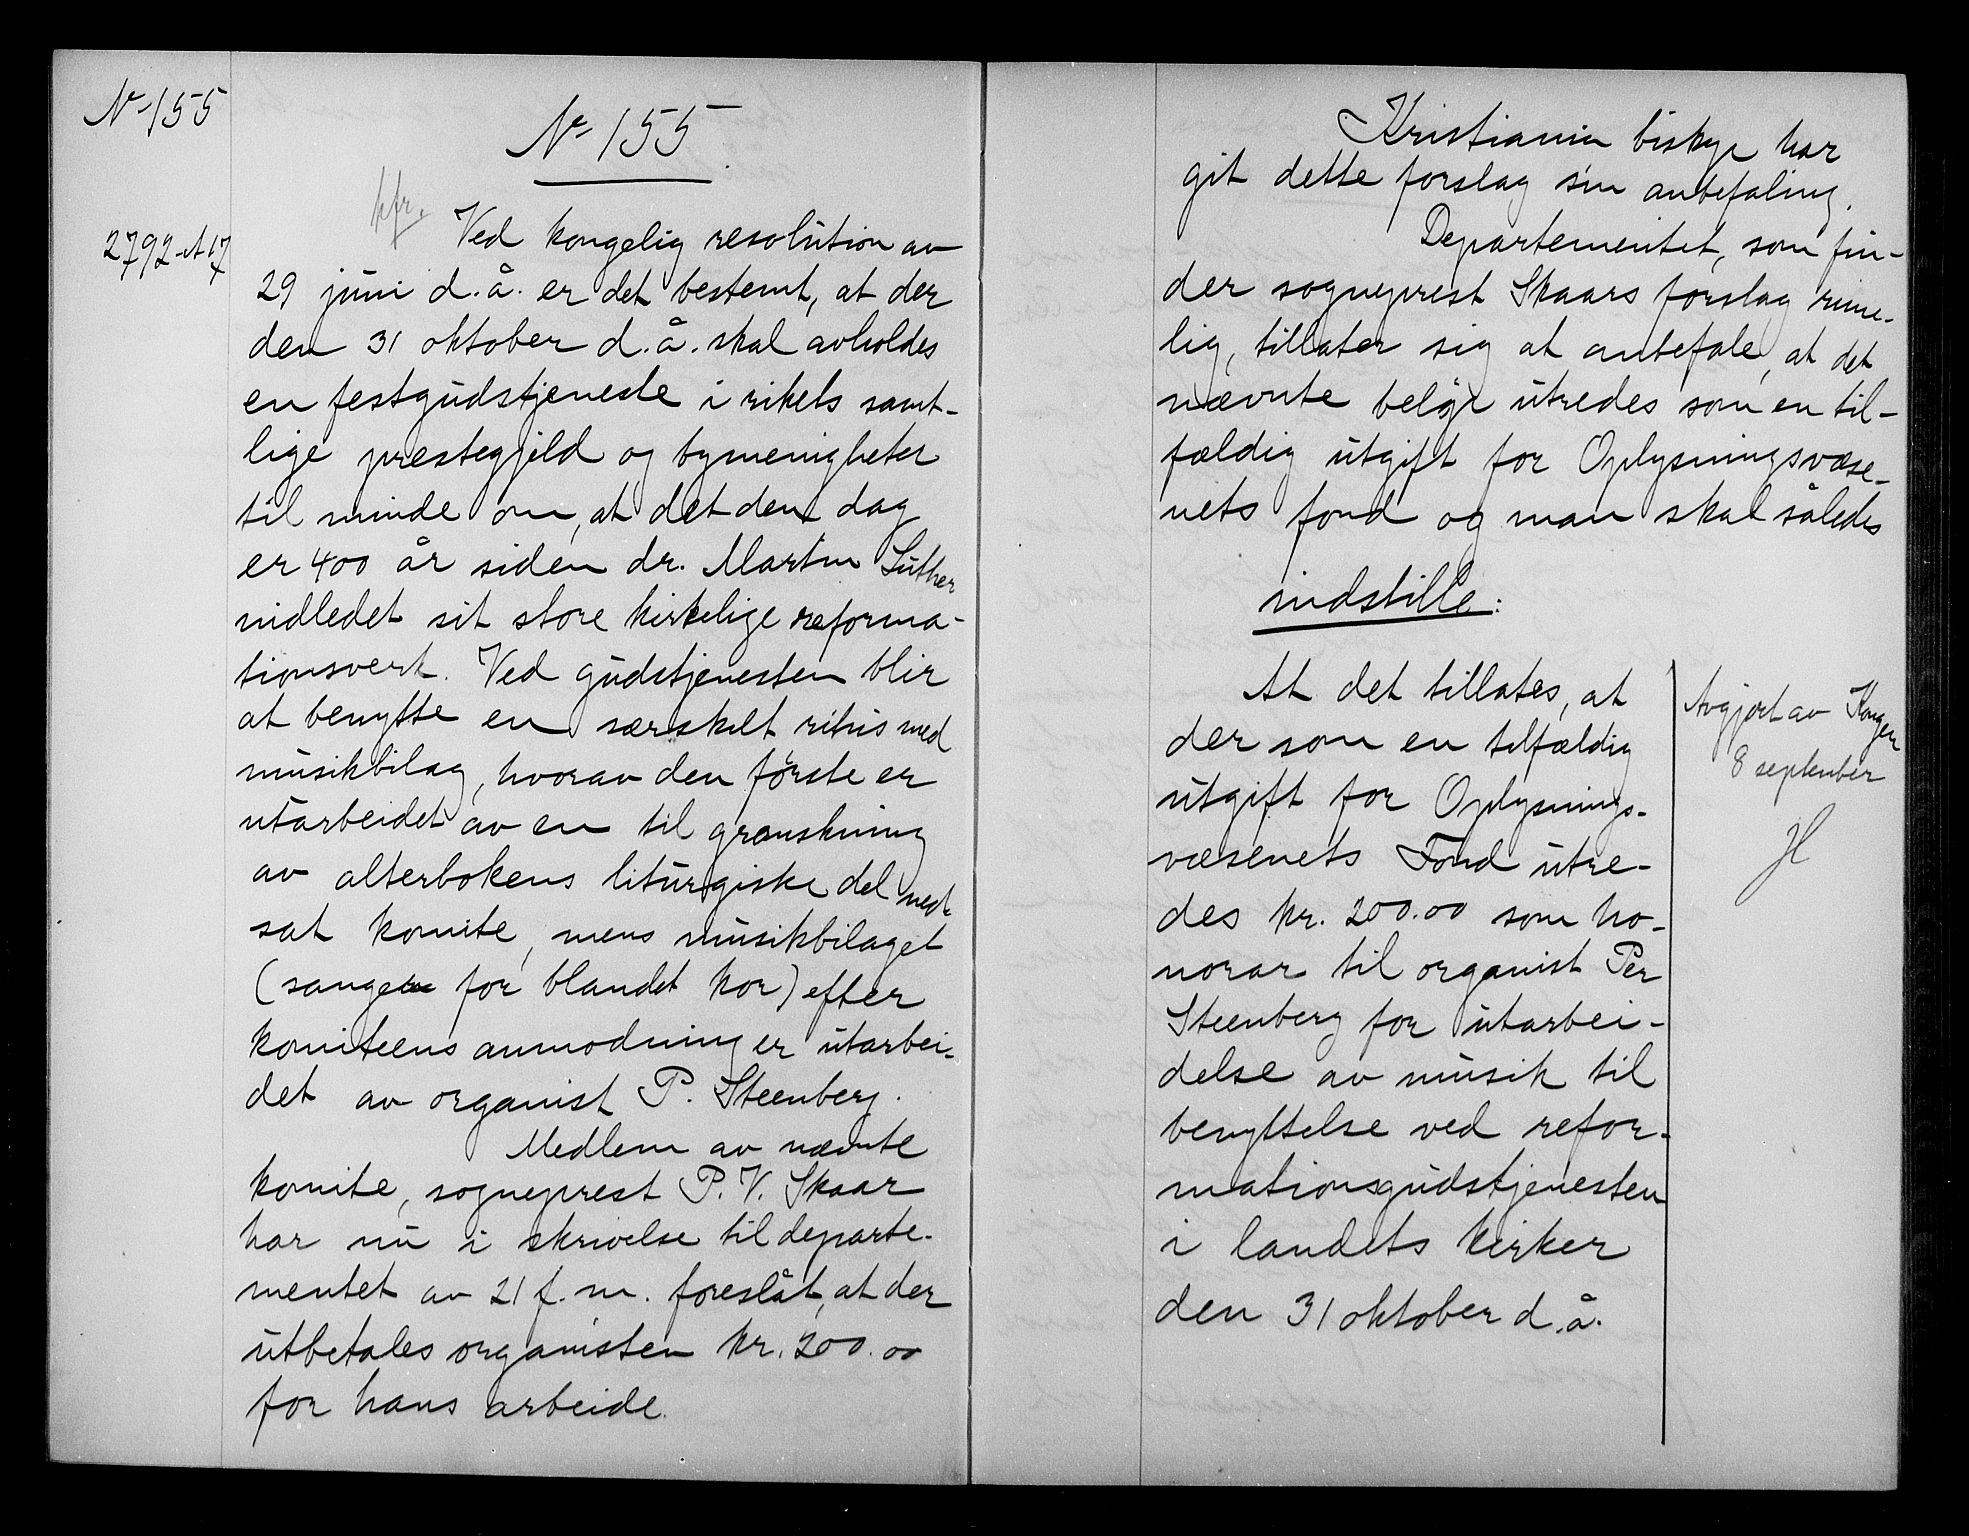 No 155
No 155
kfr.
2792 A 17
Ved kongelig resolution av
29 juni d.å. er det bestemt, at der
den 31 oktober d.å. skal avholdes
en festgudstjeneste i rikets samt-
lige prestegjeld og bymenigheter
til minde om, at det den dag
er 400 år siden dr. Martin Luther
indledet sit store kirkelige reforma-
tionsverk. Ved gudstjenesten blir
at benytte en særskilt ritus med
musikbilag, hvorav den første er
utarbeidet av en til granskning
av alterbokens liturgiske del ned-
sat komite, mens musikbilaget
(sangen for blandet kor) efter
komiteens anmodning er utarbei-
det av organist P. Steenberg.
Medlem av nævnte
komite, sogneprest P. V. Skaar
har nu i skrivelse til departe-
mentet av 21 f. m. foreslåt, at der
utbetales organisten kr. 200.00
for hans arbeide.
Kristiania biskop har
git dette forslag sin anbefaling.
Departementet, som fin-
der sogneprest Skaars forslag rime-
lig, tillater sig at anbefale, at det
nævnte beløp utredes som en til-
fældig utgift for Oplysningsvæse-
nets fond og man skal således
indstille:
At det tillates, at
der som en tilfældig
utgift for Oplysnings-
væsenets Fond utre-
des kr. 200.00 som ho-
norar til organist Per
Steenberg for utarbei-
delse av musik til
benyttelse ved refor-
mationsgudstjenesten
i landets kirker
den 31 oktober d.å.
Avgjort av Kongen
8 september
H